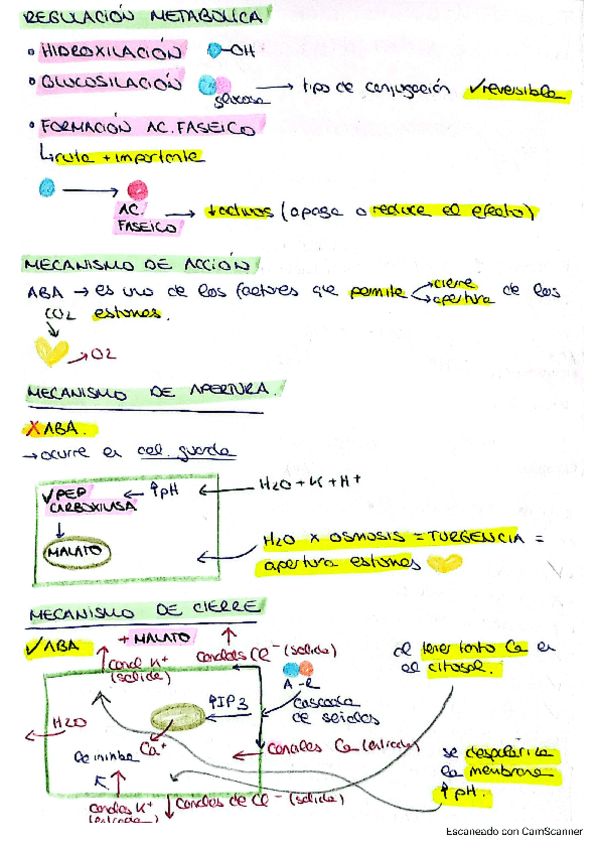 REGULACIÓN METABÓLICA
• HIDROXILACIÓN -OH
• GLUCOSILACIÓN → tipo de conjugación ✓reversible
glucosa
• FORMACIÓN AC. FASEICO
↳ruta + importante
AC. FASEICO → ↓activos (apaga o reduce el efecto)
MECANISMO DE ACCIÓN
ABA → es uno de los factores que permite → cierre → apertura de los
CO2 estomas.
→ O2
MECANISMO DE APERTURA.
X ABA.
→ ocurre en cel. guarda
✓PEP CARBOXILASA ← ↑pH ← H2O + K + H+
MALATO
H2O x OSMOSIS = TURGENCIA =
apertura estomas
MECANISMO DE CIERRE
✓ABA + MALATO
Canal K+ (salida)
canales Cl- (salida)
al tener tanto Ca en
el citosol.
A-R
↑IP3
cascada
de señales
H2O
Ca+
canales Ca (entrada)
se despolariza
la membrana
↑pH.
canales K+ (entrada)
↓ canales de Cl- (salida)
Escaneado con CamScanner